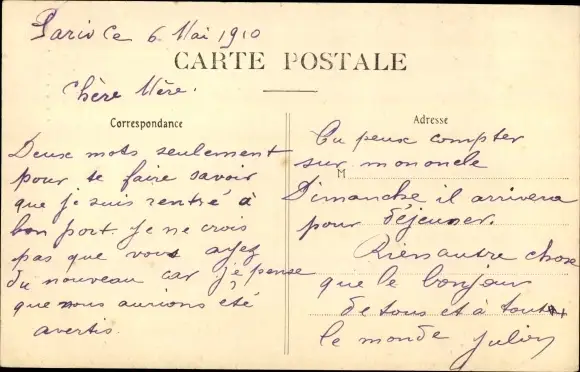 Paris Ce 6 Mai 1910
CARTE POSTALE
Chère Mère.
Correspondance
Deux mots seulement
pour te faire savoir
que je suis rentré à
bon port. Je ne crois
pas que vous ayez
du nouveau car je pense
que nous aurions été
avertis.
Adresse
Tu peux compter
sur mon oncle
M
Dimanche il arrivera
pour déjeuner.
Rien autre chose
que le bonjour
de tous et à tout
le monde Julien